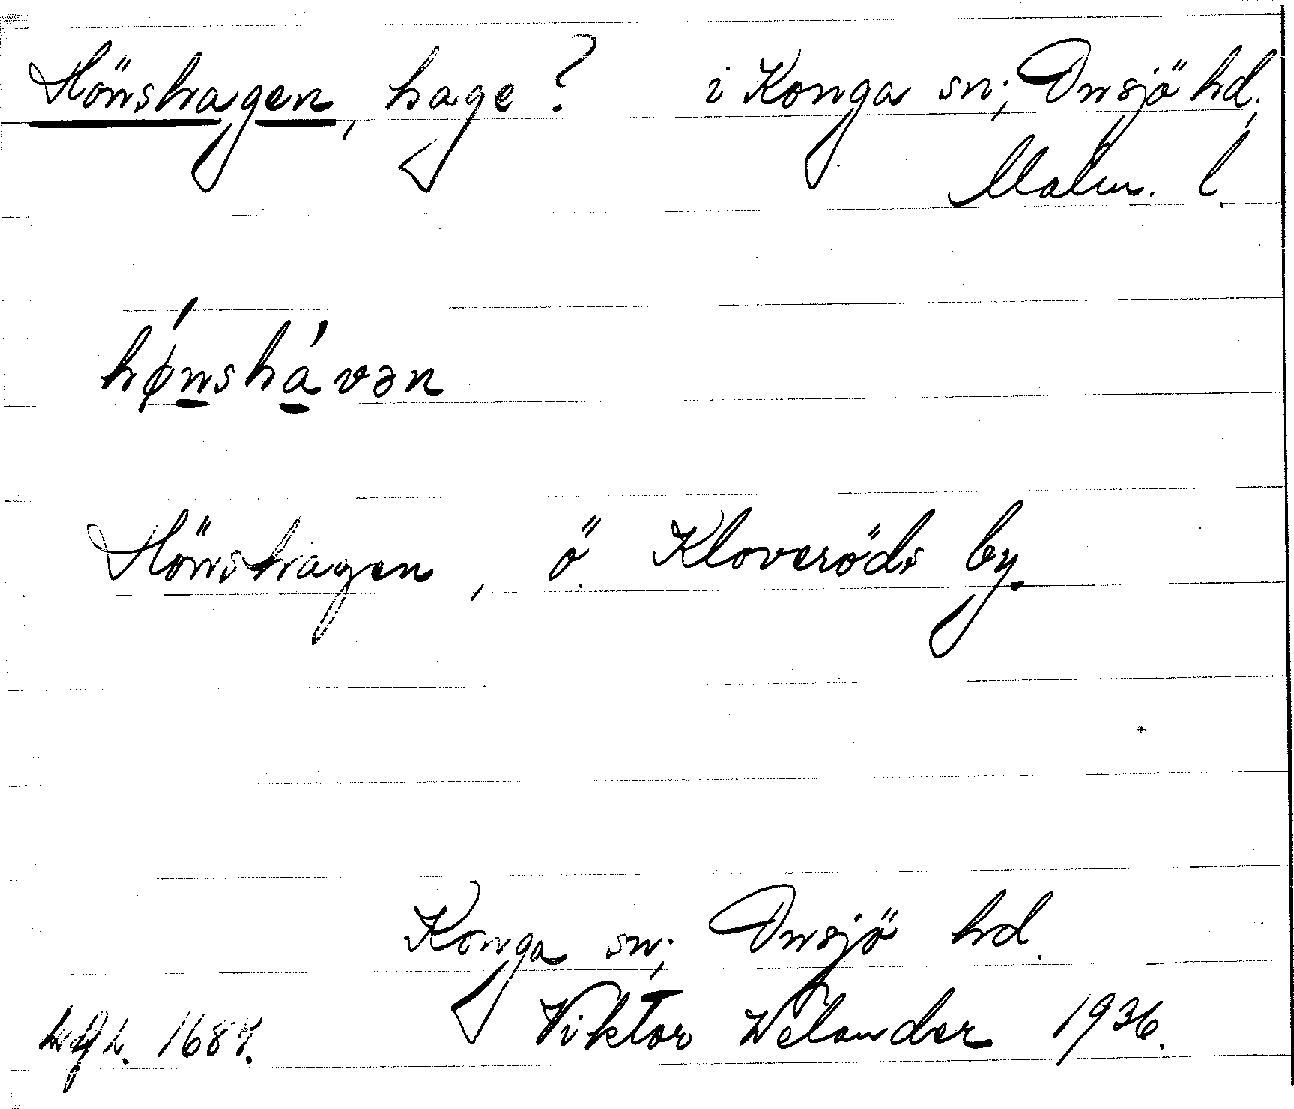 Hönshagen, hage? i Konga sn; Onsjö hd,
Malm. l.
hǿnshávən
Hönshagen, ö. Kloveröds by.
Konga sn; Onsjö hd.
Viktor Welander 1936.